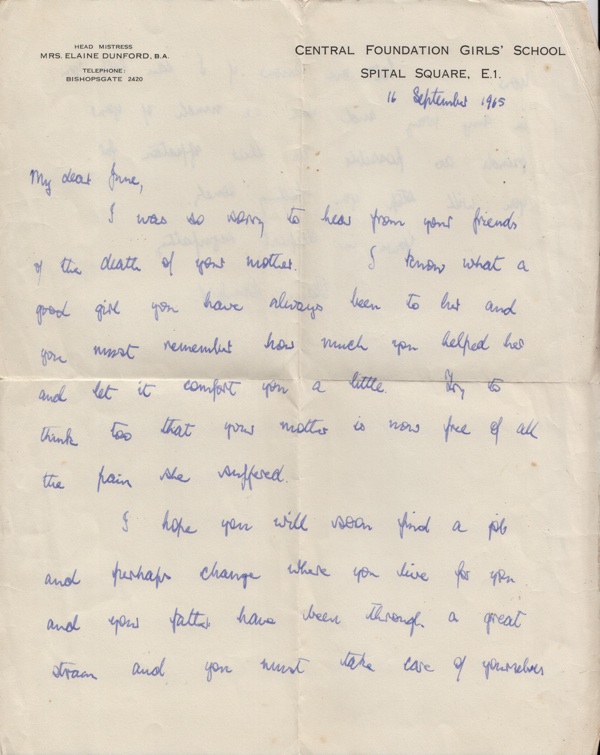 HEAD MISTRESS
MRS. ELAINE DUNFORD, B.A.
TELEPHONE:
BISHOPSGATE 2420
CENTRAL FOUNDATION GIRLS' SCHOOL
SPITAL SQUARE, E.1.
16 September 1965
My dear June,
I was so sorry to hear from your friends
of the death of your mother. I know what a
good girl you have always been to her and
you must remember how much you helped her
and let it comfort you a little. Try to
think too that your mother is now free of all
the pain she suffered.
I hope you will soon find a job
and perhaps change where you live for you
and your father have been through a great
strain and you must take care of yourselves